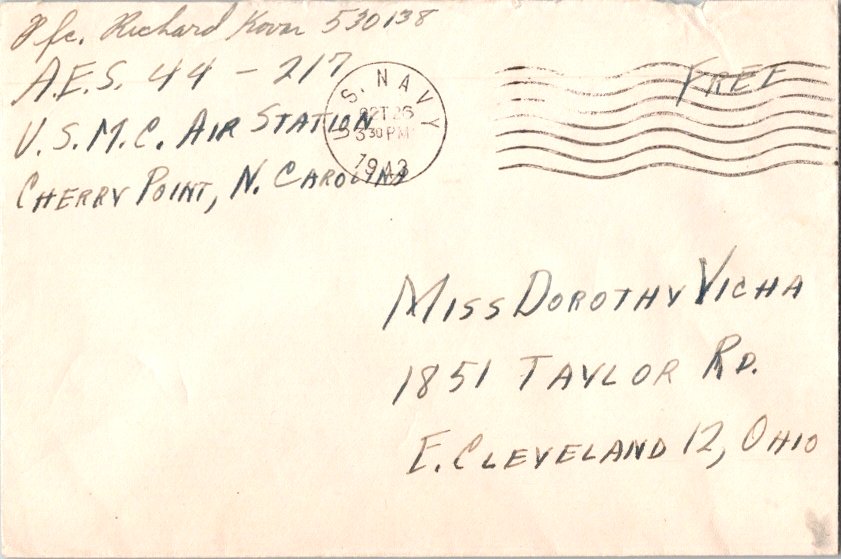 Pfc. Richard Kovar 530138
A.E.S. 44 - 217
U.S.M.C. AIR STATION
CHERRY POINT, N. CAROLINA
U.S. NAVY
OCT 26
3 30 PM
1943
FREE
MISS DOROTHY VICHA
1851 TAYLOR RD.
E. CLEVELAND 12, OHIO